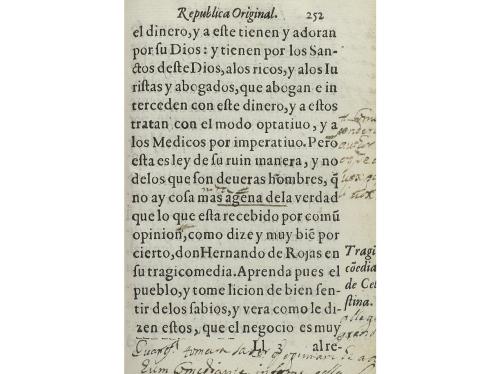 Republica Original. 252
el dinero, y a este tienen y adoran
por su Dios: y tienen por los San-
ctos deste Dios, alos ricos, y alos Iu
ristas y abogados, que abogan e in
terceden con este dinero, y a estos
tratan con el modo optatiuo, y a
los Medicos por imperatiuo. Pero
esta es ley de su ruin manera, y no
delos que son deueras hombres, q̃
no ay cosa mas agena dela verdad
que lo que esta recebido por comũ
opinion, como dize y muy biẽ por
cierto, don Hernando de Rojas en
su tragicomedia. Aprenda pues el
pueblo, y tome licion de bien sen-
tir delos sabios, y vera como le di-
zen estos, que el negocio es muy
Ll 3 al re-
Tragi
cõedia
de Cel
stina.